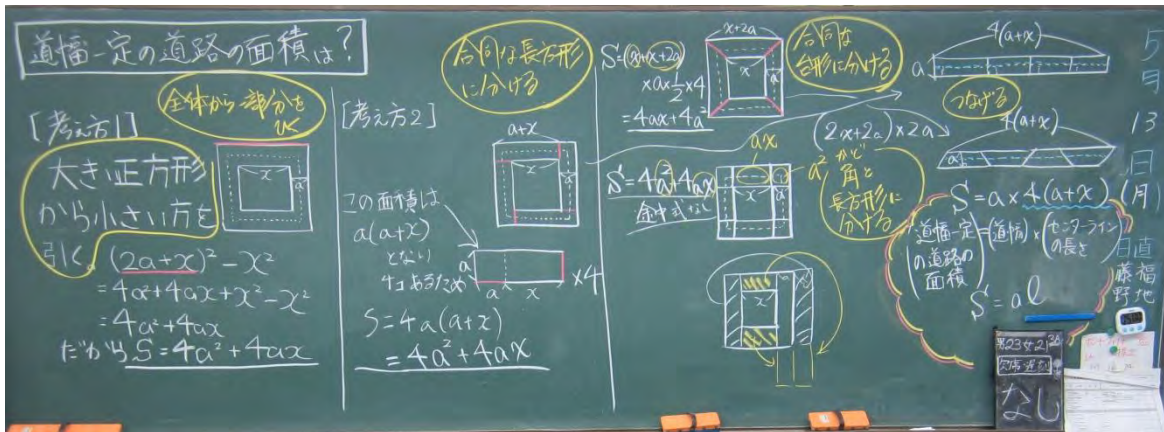 道幅一定の道路の面積は?
[考え方1]
全体から一部分を
ひく
大きい正方形
から小さい方を
引く。
x
a
(2a+x)²-x²
=4a²+4ax+x²-x²
=4a²+4ax
だから S=4a²+4ax
[考え方2]
合同な長方形
に分ける
a+x
x
この面積は
a(a+x)
となり
4コあるため
a
a
x
×4
S=4a(a+x)
=4a²+4ax
S=(x+x+2a)
×a×1/2×4
=4ax+4a²
x+2a
x
a
合同な
台形に分ける
S=4a²+4ax
途中式なし
ax
a²
x
a
かど
角と
長方形に
分ける
(2x+2a)×2a
x
4(a+x)
a
つなげる
4(a+x)
a
S=a×4(a+x)
(道幅一定の道路の面積)=(道幅)×(センターラインの長さ)
S=al
5月13日(月)
日直
福地
藤野
男23女21
欠席遅刻
なし